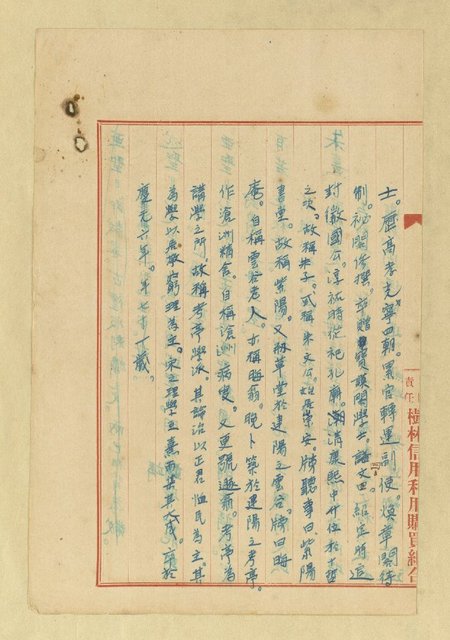 士。歷高孝光寧四朝。累官轉運副使。煥章閣待
制。祕閣修撰。卒贈寶謨閣學士。諡文。理宗時追
封徽國公。淳祐時從祀孔廟。清康熙中升位於十哲
之次。故稱朱子。或稱朱文公。居崇安。牓聽事曰紫陽
書堂。故稱紫陽。又刱草堂於建陽之雲谷。牓曰晦
庵。自稱雲谷老人。亦稱晦翁。晚卜築於建陽之考亭。
作滄洲精舍。自稱滄洲病叟。又更號遯翁。考亭為
講學之所。故稱考亭學派。其論治以正君恤民為主。其
為學以居敬窮理為主。宋之理學至熹而集其大成。卒於
慶元六年。年七十一歲。
責任 樹林信用利用購買組合